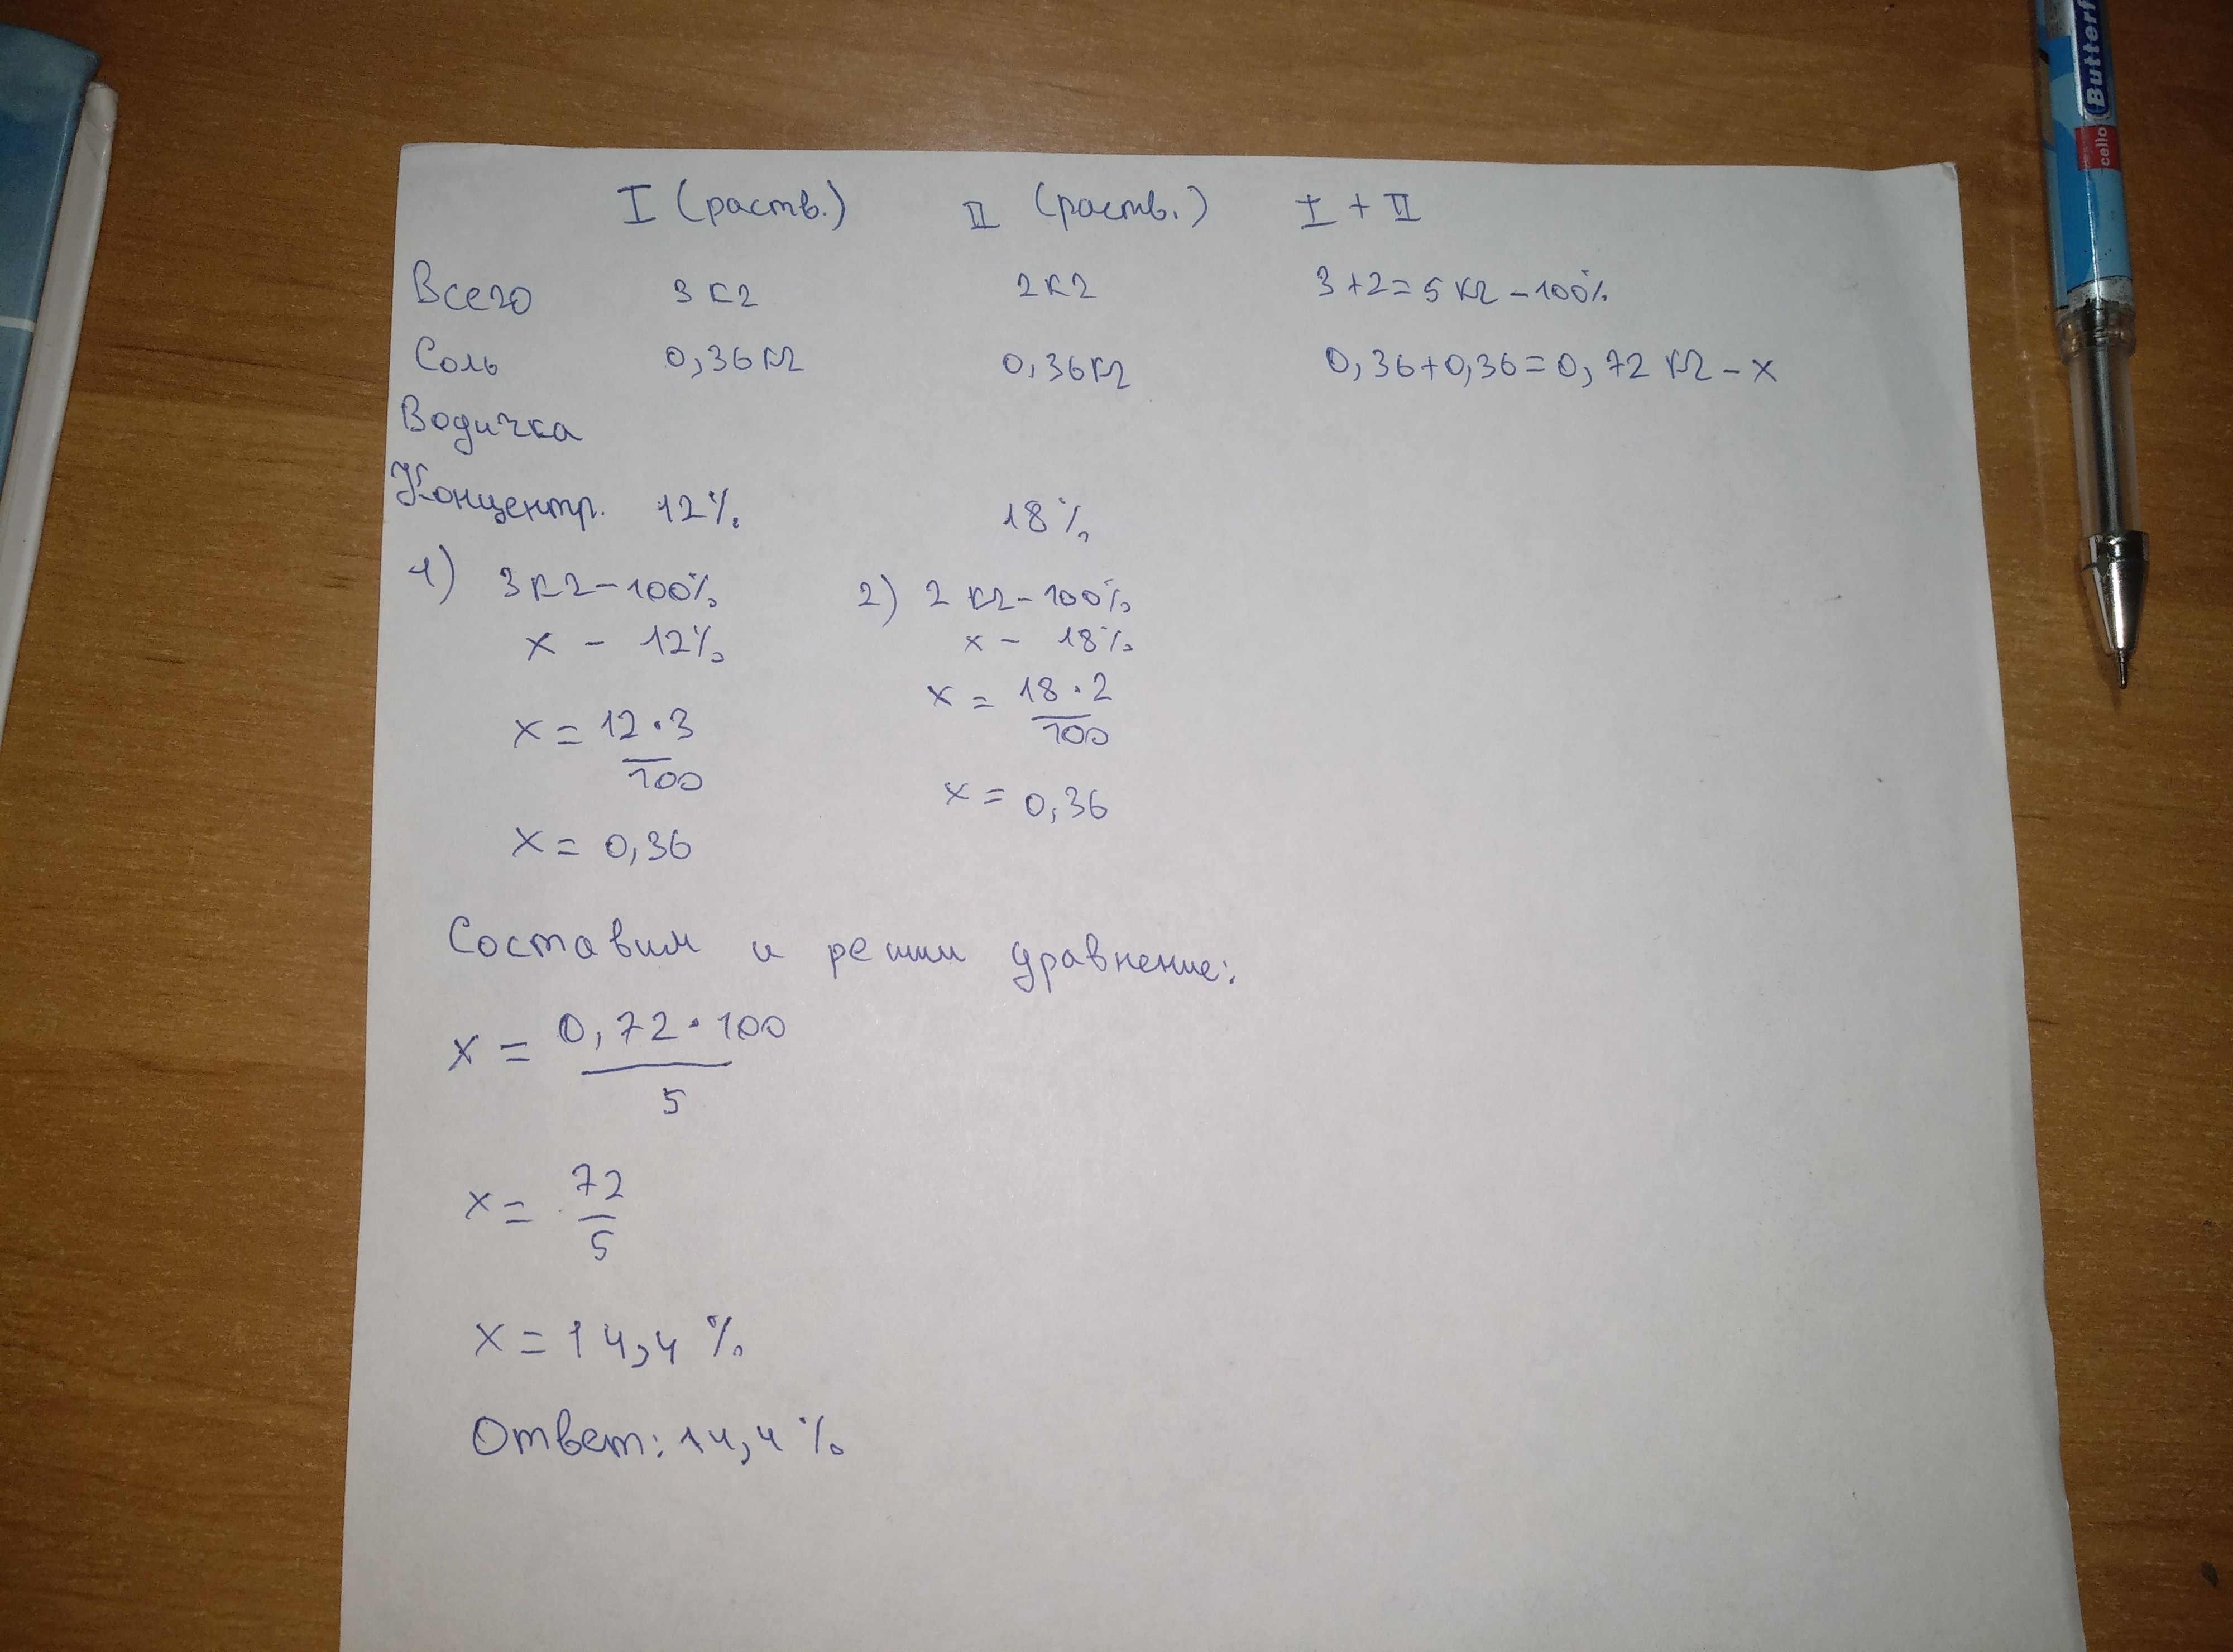 I (раств.) II (раств.) I + II
Всего 3 кг 2 кг 3+2=5 кг – 100%
Соль 0,36 кг 0,36 кг 0,36+0,36=0,72 кг – x
Водичка
Концентр. 12% 18%
1) 3 кг – 100% 2) 2 кг – 100%
x – 12% x – 18%
x = 12·3/100 x = 18·2/100
x = 0,36 x = 0,36
Составим и решим уравнение:
x = 0,72·100/5
x = 72/5
x = 14,4 %
Ответ: 14,4 %
Butterf
cello